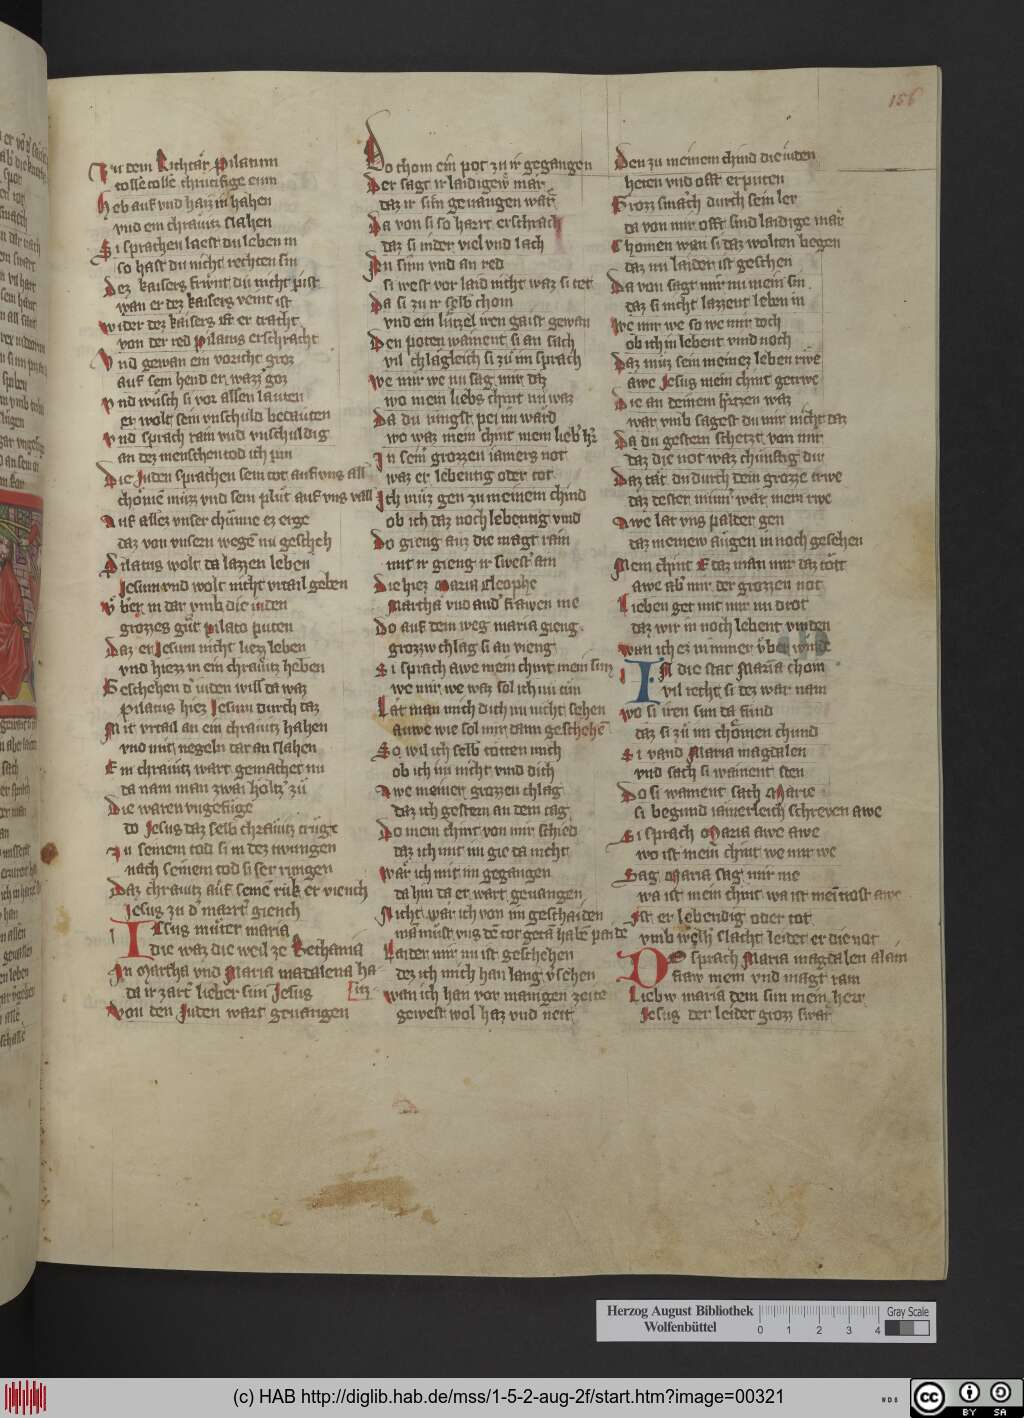 156
Vur dem Richtär Pilatum
tolle tolle chrucifige eum
Heb auf vnd haiz in hahen
vnd ein chräutz slahen
Si sprachen laest du leben in
so hast du nicht rechten sin
Dez kaisers frivnt du nicht pist
wan er dez kaisers veint ist
wider dez kaisers ist er tracht
von der red Pilatus erschracht
Vnd gewan ein voricht groz
auf sein hend er wazz goz
Vnd wusch si vor allen lauten
er wolt sein vnschuld bedauten
Vnd sprach rain vnd vnschuldig
an dez menschen tod ich pin
Die Juden sprachen sein tot auf vns all
chömē müzz vnd sein plut auf vns vall
Auf allez vnser chünne ez erge
daz von vnsern wegē nu gescheh
Pilatus wolt da lazzen leben
Jesum vnd wolt nicht vrtail geben
in dar vmb die iuden
grozzes gůt pilato puten
Daz er Jesum nicht liezz leben
vnd hiezz in ein chräutz heben
Geschehen d' iuden will da waz
Pilatus hiez Jesum durch daz
Mit vrtail an ein chräutz hahen
vnd mit negeln dar an slahen
Ein chräutz wart gemachet nu
da nam man zwai holtz' zů
Die waren vngefüge
do Jesus daz selb chräutz trüge
Zu seinem tod si in dez twungen
nach seinem tod si ser rungen
Daz chräutz auf seinē rük er viench
Jesus zu d' marter giench
Jesus můter maria
die waz die weil ze Bethania
In Martha vnd Maria madalena ha
da ir zart' lieber sun Jesus
von den Juden wart geuangen
Do chom ein pot zu ir gegangen
Der sagt ir laidigew mär
daz ir sun geuangen wär
Da von si so hart erschrach
daz si nider viel vnd lach
An sinn vnd an red
si west vor laid nicht waz si tet
Da si zu ir selb chom
vnd ein lützel iren gaist gewan
Den poten wainent si an sach
vil chlagleich si zů im sprach
we mir we nu sag mir daz
wo mein liebs chint nu waz
Da du iungst pei im ward
wo waz mein chint mein lieb' hort
In seinē grozzen iamers not
waz er lebentig oder tot
Ich müz gen zu meinem chind
ob ich daz noch lebentig vind
Do gieng auz die magt rain
mit ir gieng ir swest' ain
Die hiez Maria Cleophe
Martha vnd and' frawen me
Do auf dem weg maria gieng
grozzw chlag si an vieng
Si sprach awe mein chint mein sun
we mir we waz sol ich nu tun
Lat man mich dich nu nicht sehen
auwe wie sol mir dann geschehē
So wil ich selb' tötten mich
ob ich nu nicht vind dich
Awe meiner grozzen chlag
daz ich gestern an dem tag
Do mein chint von mir schied
daz ich mit im gie da nicht
wär ich mit im gegangen
da hin da er wart geuangen
Nicht wär ich von im geschaiden
Laider mir nu ist geschehen
dez ich mich han lang v'sehen
wan ich han vor manigen zeite
gewest wol haz vnd neit
Den zu meinem chind die iuden
heten vnd offt erputen
Grozz smach durch sein ler
da von mir offt sind laidige mär
Chomen wan si daz wolten begen
daz mi laider ist geschen
Da von sagt mir nu mein sin
daz si nicht lazzent leben in
we mir we so we mir doch
ob ich in lebent vind noch
Daz müz sein meinez leben rwe
awe Jesus mein chint getrwe
Die an deinem hrtzen waz
war vmb sagest du mir nicht daz
Da du gestern schetzt von mir
daz die not waz chünftig dir
Daz tät du durch dein grozze trwe
daz dester minn' wär mein rwe
Awe lat vns palder gen
daz meinew augen in noch gesehen
Mein chint E daz man mir daz tött
awe ab' mir der grozzen not
Lieben get mit mir nu drot
daz wir in noch lebent vinden
wan ich ez nimmer über winde
In die stat Maria chom
vil recht si dez war nam
wo si iren sun da fund
daz si zů im chömen chund
Si vand Maria magdalen
vnd sach si wainent sten
Do si wainent sach Marie
si begund iamerleich schreyen awe
Si sprach Maria awe awe
wo ist mein chint we mir we
Sag Maria sag mir me
wa ist mein chint wa ist mein trost awe
Ist er lebendig oder tot
vmb welh slacht leidet er die not
Do sprach Maria magdalen alain
fraw mein vnd magt rain
Liebw maria dein sun mein herr
Jesus der leidet grozz swär
Herzog August Bibliothek
Wolfenbüttel
0 1 2 3 4
Gray Scale
(c) HAB http://diglib.hab.de/mss/1-5-2-aug-2f/start.htm?image=00321
WDB
cc BY SA